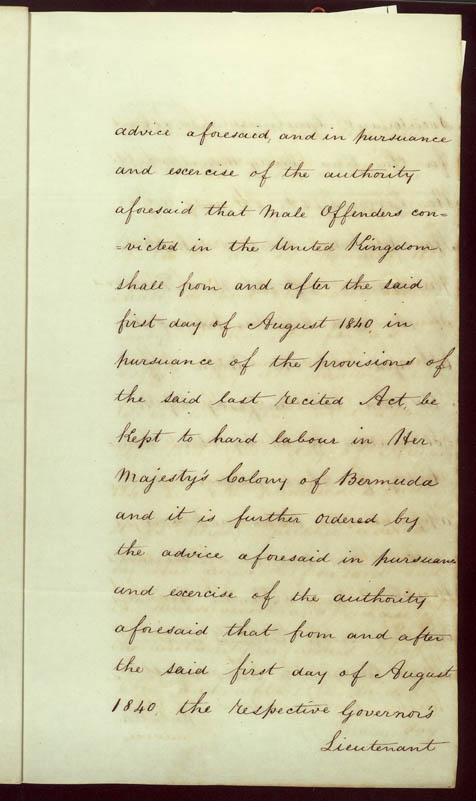 advice aforesaid, and in pursuance
and exercise of the authority
aforesaid that Male Offenders con=
=victed in the United Kingdom
shall from and after the said
first day of August 1840, in
pursuance of the provisions of
the said last recited Act, be
kept to hard labour in Her
Majesty's Colony of Bermuda
and it is further ordered by
the advice aforesaid in pursuance
and exercise of the authority
aforesaid that from and after
the said first day of August
1840, the respective Governor's
Lieutenant